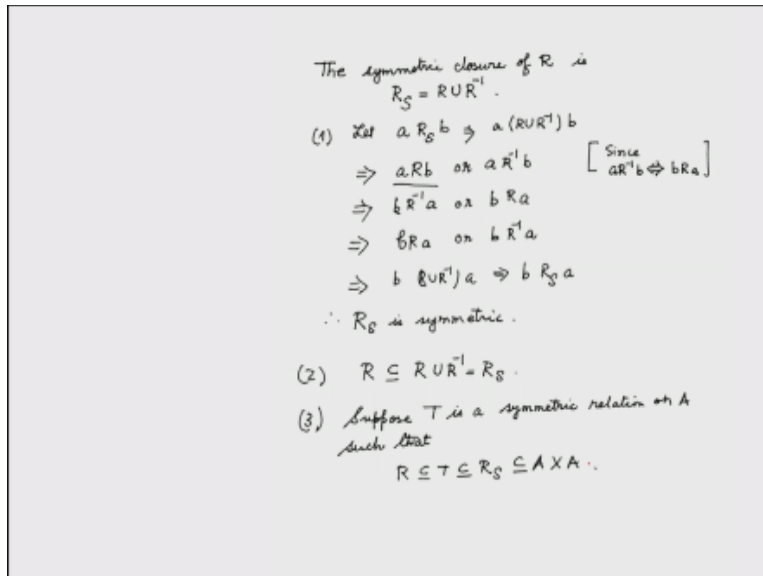 The symmetric closure of R is
R_S = R ∪ R⁻¹.
(1) Let a R_S b ⇒ a (R∪R⁻¹) b
⇒ aRb or a R⁻¹ b [Since aR⁻¹b ⇔ bRa]
⇒ b R⁻¹ a or b R a
⇒ b R a or b R⁻¹ a
⇒ b (R∪R⁻¹) a ⇒ b R_S a
∴ R_S is symmetric.
(2) R ⊆ R ∪ R⁻¹ = R_S.
(3) Suppose T is a symmetric relation on A
such that
R ⊆ T ⊆ R_S ⊆ A × A.